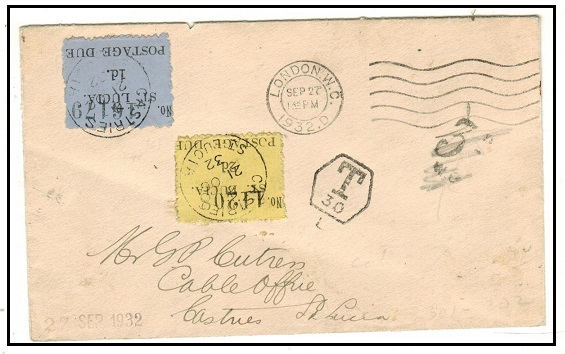 POSTAGE DUE
1d.
ST. LUCIA.
No.
POSTAGE DUE
2d.
ST. LUCIA.
No.
LONDON.W.C.
SEP 27
PM
1932.D
T
30
L
Mr G P
Cable Office
Castries St Lucia
27 SEP 1932